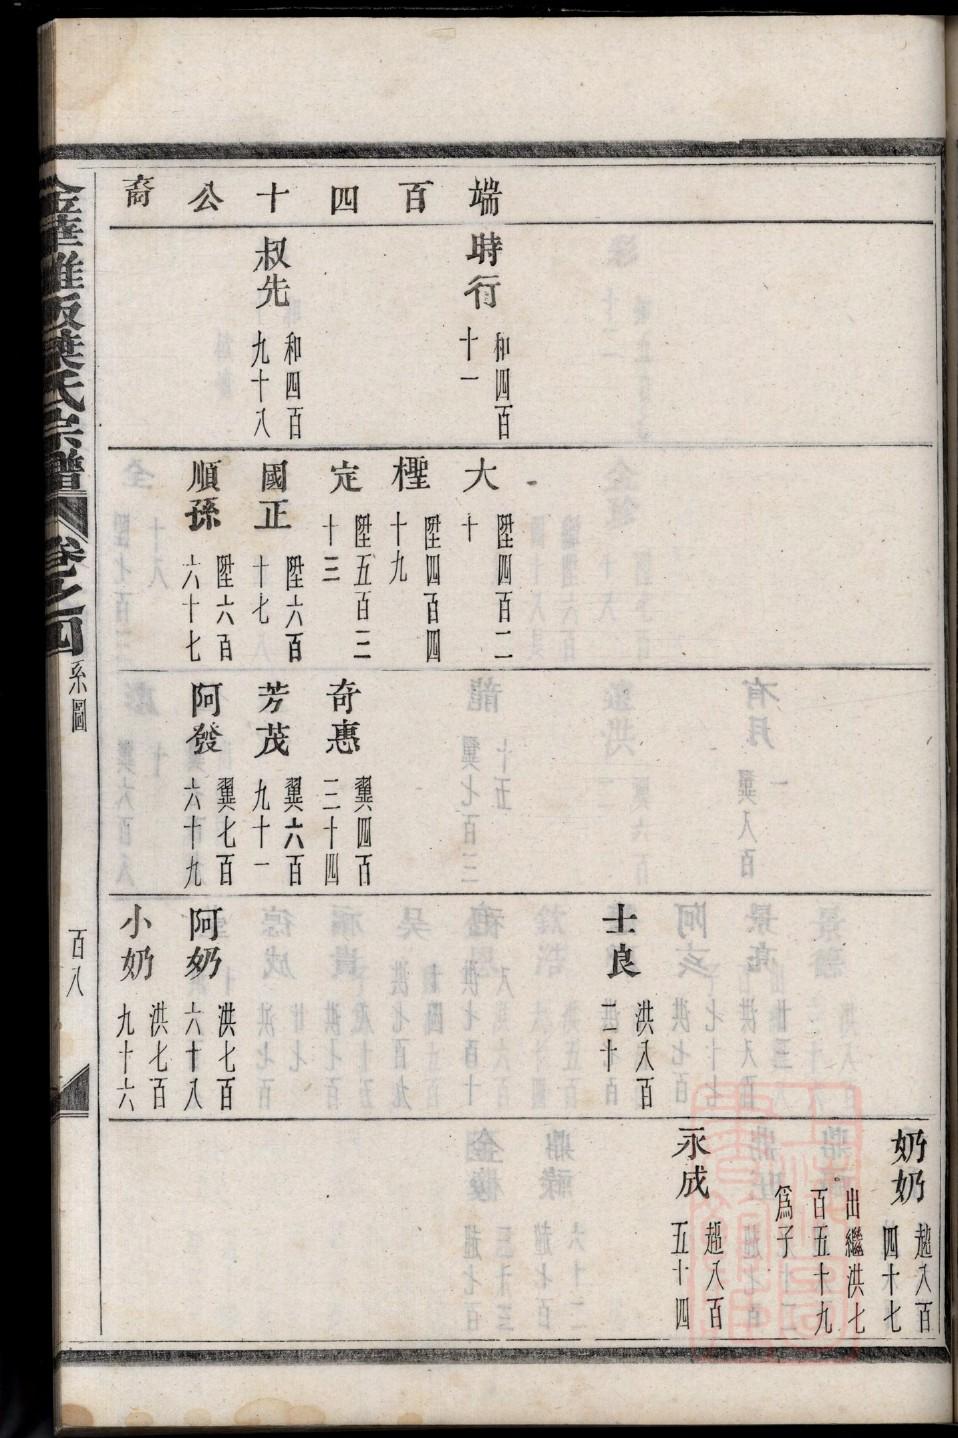 端百四十公裔
時行 和四百十一
叔先 和四百九十八
大 陞四百二十
檉 陞四百四十九
定 陞五百三十三
國正 陞六百十七
順孫 陞六百六十七
奇惠 翼四百三十四
芳茂 翼六百九十一
阿發 翼七百六十九
士良 洪八百二十
阿奶 洪七百六十八
小奶 洪七百九十六
奶奶 趙八百四十七
出繼洪七百五十九爲子
永成 趙八百五十四
華 葉氏宗譜 卷之四 系圖 百八